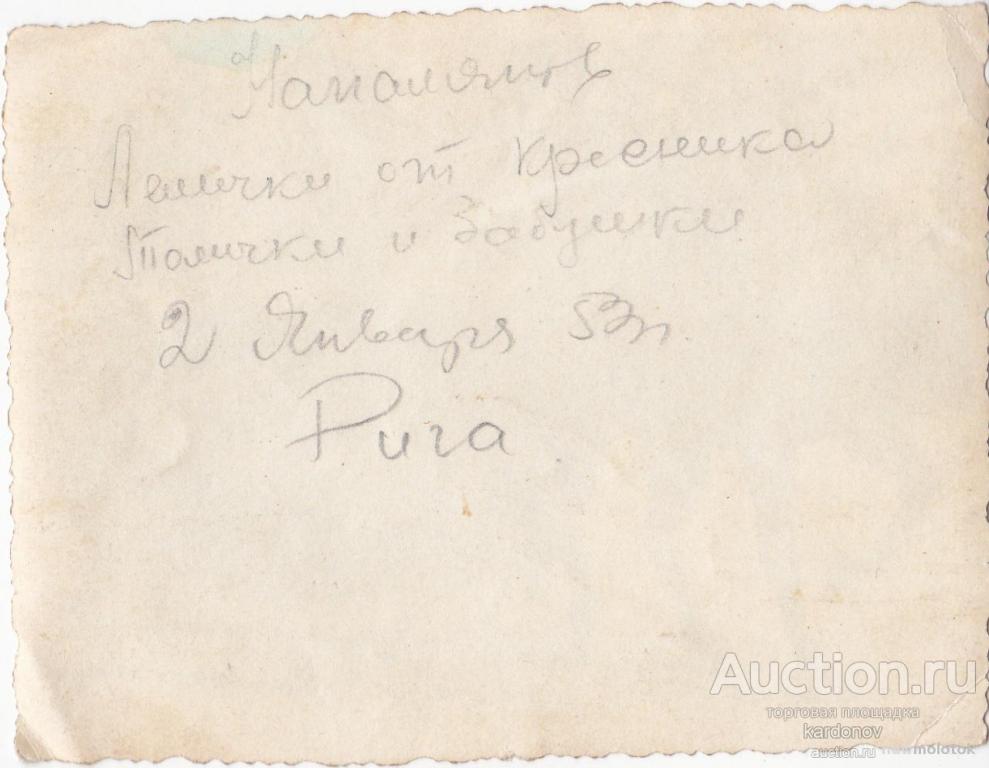 На память
Лемички от кресника
Томички и Забушки
2 Января 53г.
Рига
Auction.ru
торговая площадка
kardonov
auction.ru newmolotok